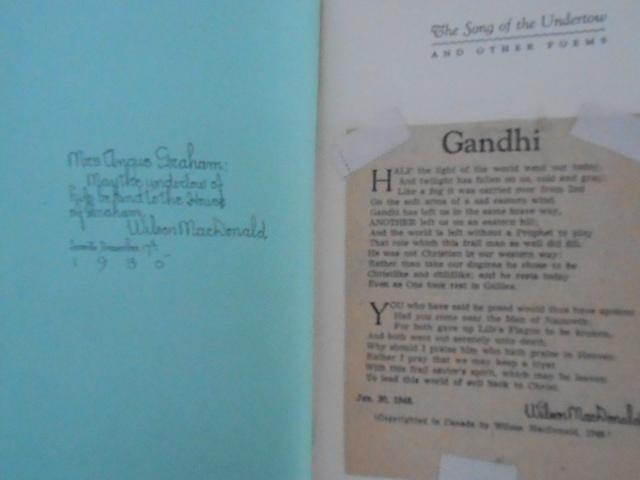 Mrs Angus Graham:
May the undertow of
life be kind to the House
of Graham
Wilson MacDonald
Toronto December 17th
1935
The Song of the Undertow
AND OTHER POEMS
Gandhi
HALF the light of the world went out today;
And twilight has fallen on us, cold and gray;
Like a fog it was carried over from Ind
On the soft arms of a sad eastern wind.
Gandhi has left us in the same brave way,
ANOTHER left us on an eastern hill;
And the world is left without a Prophet to play
That role which this frail man so well did fill.
He was not Christian in our western way:
Rather than take our dogmas he chose to be
Christlike and childlike; and he rests today
Even as One took rest in Galilee.
YOU who have said he posed would thus have spoken
Had you come near the Man of Nazareth;
For both gave up Life's Flagon to be broken,
And both went out serenely unto death.
Why should I praise him who hath praise in Heaven
Rather I pray that we may keep a tryst
With this frail savior's spirit, which may be leaven
To lead this world of evil back to Christ.
Jan. 30, 1948.
Wilson MacDonald
(Copyrighted in Canada by Wilson MacDonald, 1948.)